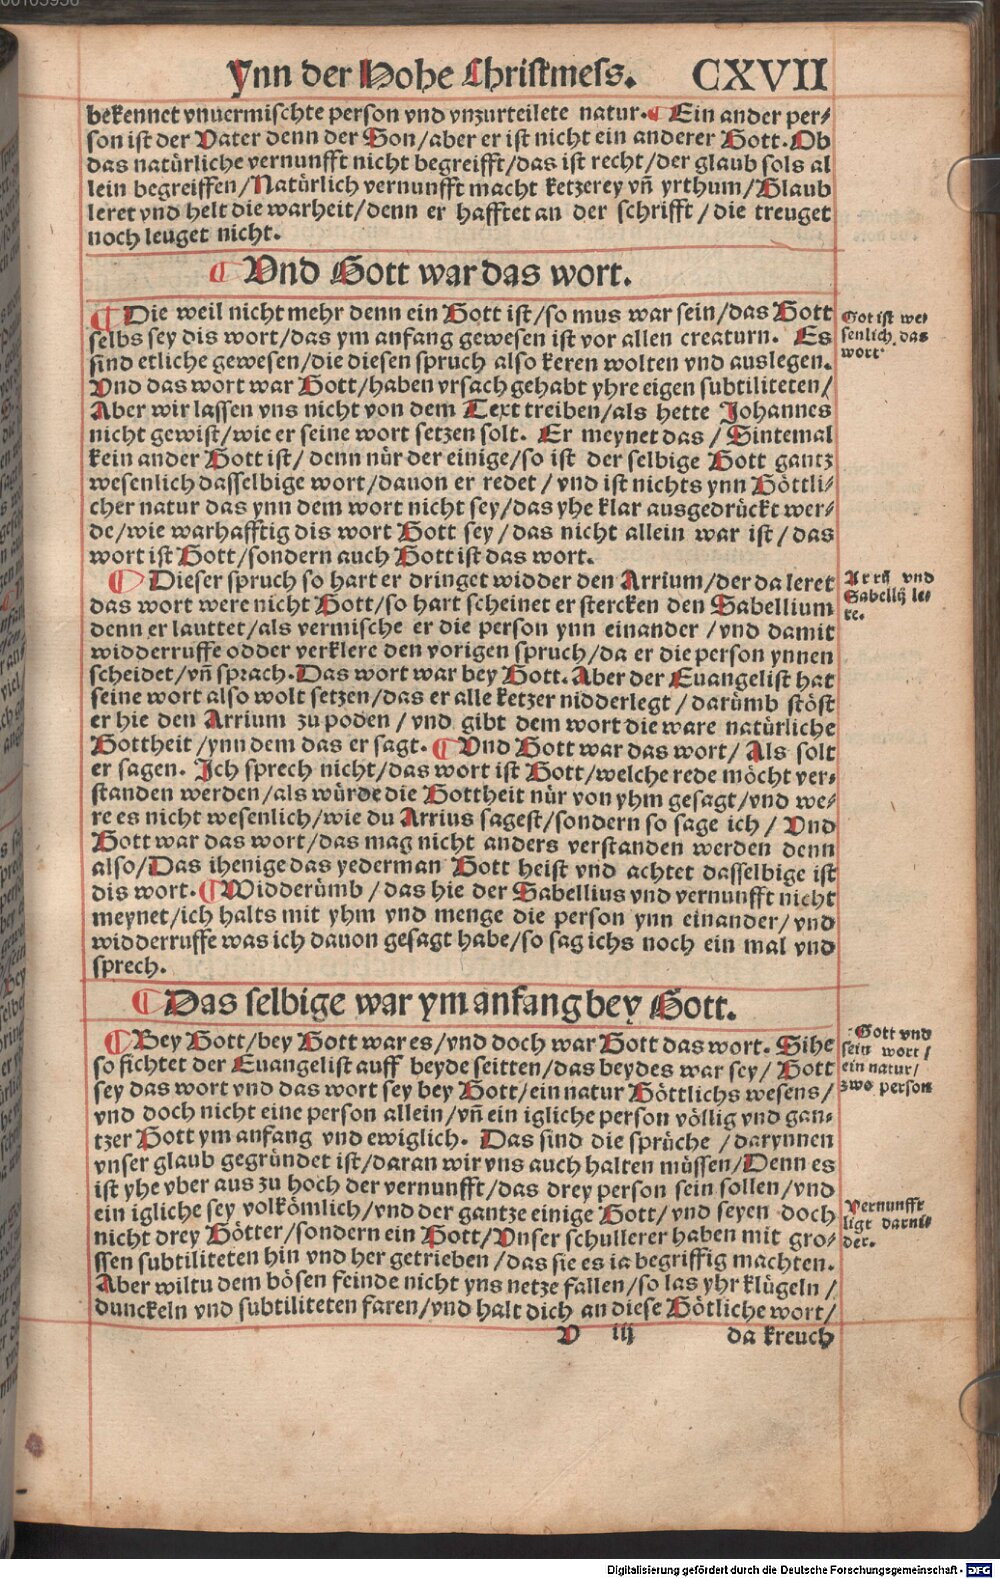 Ynn der Hohe Christmess. CXVII
bekennet vnuermischte person vnd vnzurteilete natur. ¶ Ein ander per⸗
son ist der Vater denn der Son/aber er ist nicht ein anderer Gott. Ob
das natürliche vernunfft nicht begreifft/das ist recht/der glaub sols al
lein begreiffen/Natürlich vernunfft macht ketzerey vñ yrthum/Glaub
leret vnd helt die warheit/denn er hafftet an der schrifft/die treuget
noch leuget nicht.
¶ Vnd Gott war das wort.
¶ Die weil nicht mehr denn ein Gott ist/so mus war sein/das Gott
selbs sey dis wort/das ym anfang gewesen ist vor allen creaturn. Es
sind etliche gewesen/die diesen spruch also keren wolten vnd auslegen.
Vnd das wort war Gott/haben vrsach gehabt yhre eigen subtiliteten/
Aber wir lassen vns nicht von dem Text treiben/als hette Johannes
nicht gewist/wie er seine wort setzen solt. Er meynet das/Sintemal
kein ander Gott ist/denn nür der einige/so ist der selbige Gott gantz
wesenlich dasselbige wort/dauon er redet/vnd ist nichts ynn Göttli⸗
cher natur das ynn dem wort nicht sey/das yhe klar ausgedrückt wer⸗
de/wie warhafftig dis wort Gott sey/das nicht allein war ist/das
wort ist Gott/sondern auch Gott ist das wort.
Got ist we⸗
senlich das
wort
¶ Dieser spruch so hart er dringet widder den Arrium/der da leret
das wort were nicht Gott/so hart scheinet er stercken den Sabellium
denn er lauttet/als vermische er die person ynn einander/vnd damit
widderruffe odder verklere den vorigen spruch/da er die person ynnen
scheidet/vñ sprach. Das wort war bey Gott. Aber der Euangelist hat
seine wort also wolt setzen/das er alle ketzer nidderlegt/darümb stöst
er hie den Arrium zu poden/vnd gibt dem wort die ware natürliche
Gottheit/ynn dem das er sagt. ¶ Vnd Gott war das wort/Als solt
er sagen. Ich sprech nicht/das wort ist Gott/welche rede möcht ver⸗
standen werden/als würde die Gottheit nür von yhm gesagt/vnd we⸗
re es nicht wesenlich/wie du Arrius sagest/sondern so sage ich/Vnd
Gott war das wort/das mag nicht anders verstanden werden denn
also/Das ihenige das yederman Gott heist vnd achtet dasselbige ist
dis wort. ¶ Widderümb/das hie der Sabellius vnd vernunfft nicht
meynet/ich halts mit yhm vnd menge die person ynn einander/vnd
widderruffe was ich dauon gesagt habe/so sag ichs noch ein mal vnd
sprech.
Arrij vnd
Sabellij le⸗
re.
¶ Das selbige war ym anfang bey Gott.
¶ Bey Gott/bey Gott war es/vnd doch war Gott das wort. Sihe
so fichtet der Euangelist auff beyde seitten/das beydes war sey/Gott
sey das wort vnd das wort sey bey Gott/ein natur Göttlichs wesens/
vnd doch nicht eine person allein/vñ ein igliche person völlig vnd gan⸗
tzer Gott ym anfang vnd ewiglich. Das sind die sprüche/darynnen
vnser glaub gegründet ist/daran wir vns auch halten müssen/Denn es
ist yhe vber aus zu hoch der vernunfft/das drey person sein sollen/vnd
ein igliche sey volkömlich/vnd der gantze einige Gott/vnd seyen doch
nicht drey Götter/sondern ein Gott/Vnser schullerer haben mit gro⸗
ssen subtiliteten hin vnd her getrieben/das sie es ia begriffig machten.
Aber wiltu dem bösen feinde nicht yns netze fallen/so las yhr klügeln/
dunckeln vnd subtiliteten faren/vnd halt dich an diese Götliche wort/
Gott vnd
sein wort/
ein natur/
zwo person
Vernunfft
ligt darni⸗
der.
V iij da kreuch
Digitalisierung gefördert durch die Deutsche Forschungsgemeinschaft - DFG